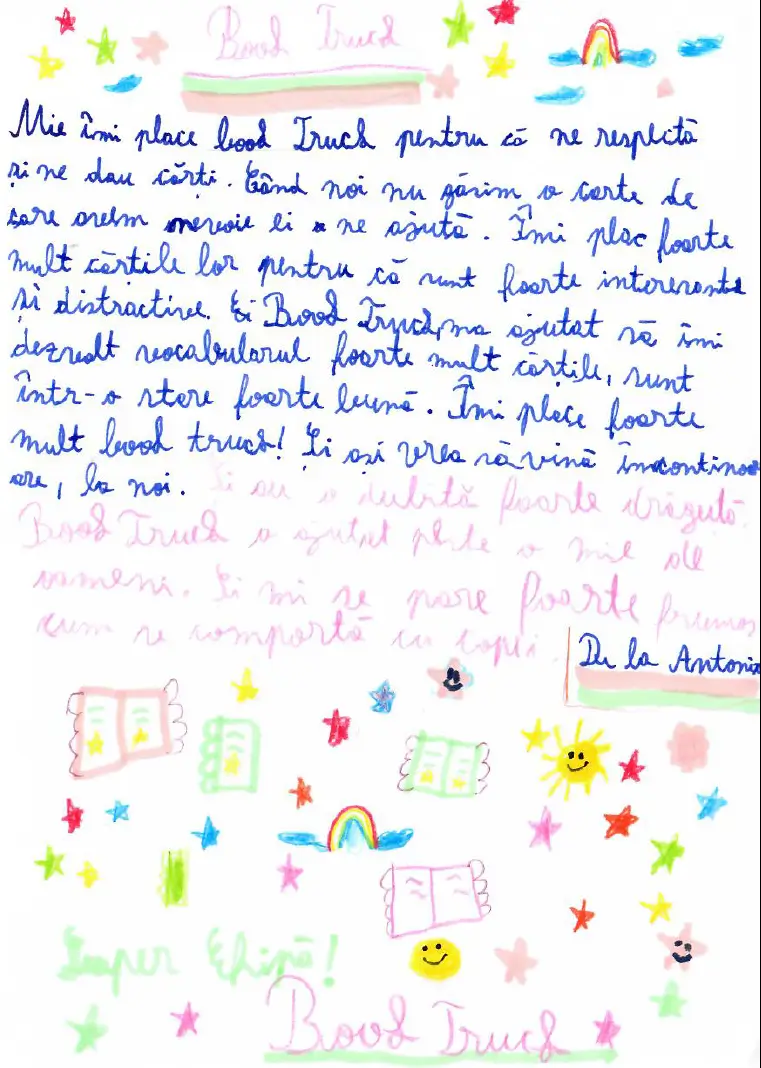 Book Truck
Mie îmi place book Truck pentru că ne respectă
și ne dau cărti. Când noi nu găsim o carte de
care avem nevoie ei ne ajută. Îmi plac foarte
mult cărtile lor pentru că sunt foarte interesante
și distractive. Ei Book Truck, ma ajutat să îmi
dezvolt vocabularul foarte mult cărtile, sunt
într-o stare foarte bună. Îmi place foarte
mult book truck! Și ași vrea să vină încontinou
are, la noi. Ei au o dubită foarte drăguță.
Book Truck a ajutat peste o mie de
oameni. Și mi se pare foarte frumos
cum se comportă cu copii.
De la Antonia
Super Ehipă!
Book Truck